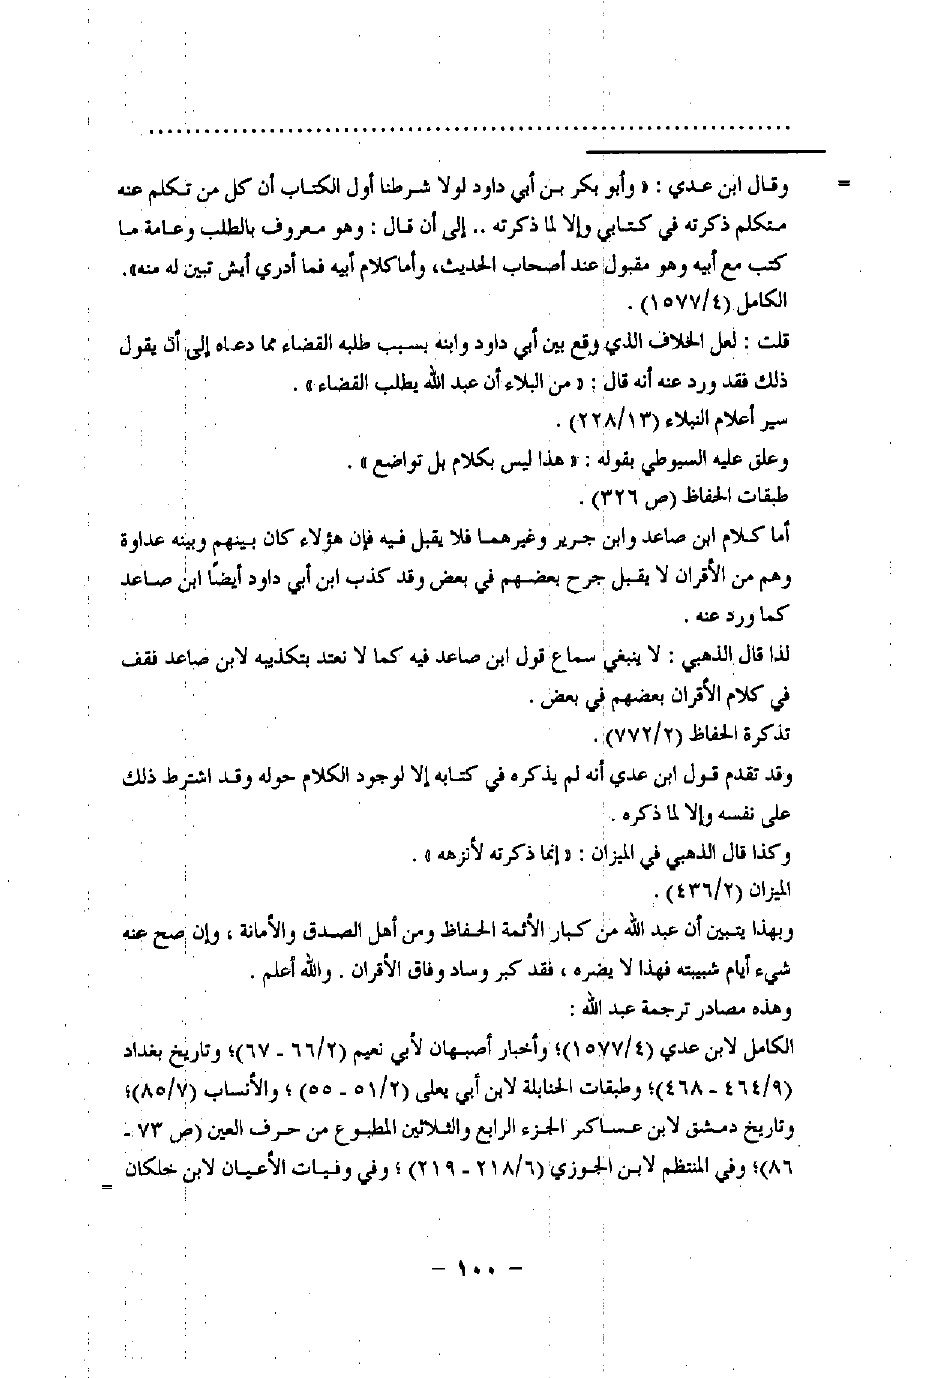 ................................................................
= وقال ابن عدي : « وأبو بكر بن أبي داود لولا شرطنا أول الكتاب أن كل من تكلم عنه
متكلم ذكرته في كتابي وإلا لما ذكرته .. إلى أن قال : وهو معروف بالطلب وعامة ما
كتب مع أبيه وهو مقبول عند أصحاب الحديث، وأما كلام أبيه فما أدري أيش تبين له منه».
الكامل (١٥٧٧/٤) .
قلت : لعل الخلاف الذي وقع بين أبي داود وابنه بسبب طلبه القضاء مما دعاه إلى أن يقول
ذلك فقد ورد عنه أنه قال : « من البلاء أن عبد الله يطلب القضاء » .
سير أعلام النبلاء (٢٢٨/١٣) .
وعلق عليه السيوطي بقوله : « هذا ليس بكلام بل تواضع » .
طبقات الحفاظ (ص ٣٢٦) .
أما كلام ابن صاعد وابن جرير وغيرهما فلا يقبل فيه فإن هؤلاء كان بينهم وبينه عداوة
وهم من الأقران لا يقبل جرح بعضهم في بعض وقد كذب ابن أبي داود أيضًا ابن صاعد
كما ورد عنه .
لذا قال الذهبي : لا ينبغي سماع قول ابن صاعد فيه كما لا نعتد بتكذيبه لابن صاعد فقف
في كلام الأقران بعضهم في بعض .
تذكرة الحفاظ (٧٧٢/٢) .
وقد تقدم قول ابن عدي أنه لم يذكره في كتابه إلا لوجود الكلام حوله وقد اشترط ذلك
على نفسه وإلا لما ذكره .
وكذا قال الذهبي في الميزان : « إنما ذكرته لأنزهه » .
الميزان (٤٣٦/٢) .
وبهذا يتبين أن عبد الله من كبار الأئمة الحفاظ ومن أهل الصدق والأمانة ، وإن صح عنه
شيء أيام شبيبته فهذا لا يضره ، فقد كبر وساد وفاق الأقران . والله أعلم .
وهذه مصادر ترجمة عبد الله :
الكامل لابن عدي (١٥٧٧/٤)؛ وأخبار أصبهان لأبي نعيم (٦٦/٢ - ٦٧)؛ وتاريخ بغداد
(٤٦٤/٩ - ٤٦٨)؛ وطبقات الحنابلة لابن أبي يعلى (٥١/٢ - ٥٥) ؛ والأنساب (٨٥/٧)؛
وتاريخ دمشق لابن عساكر الجزء الرابع والثلاثين المطبوع من حرف العين (ص ٧٣ -
٨٦)؛ وفي المنتظم لابن الجوزي (٢١٨/٦ - ٢١٩) ؛ وفي وفيات الأعيان لابن خلكان =
- ١٠٠ -